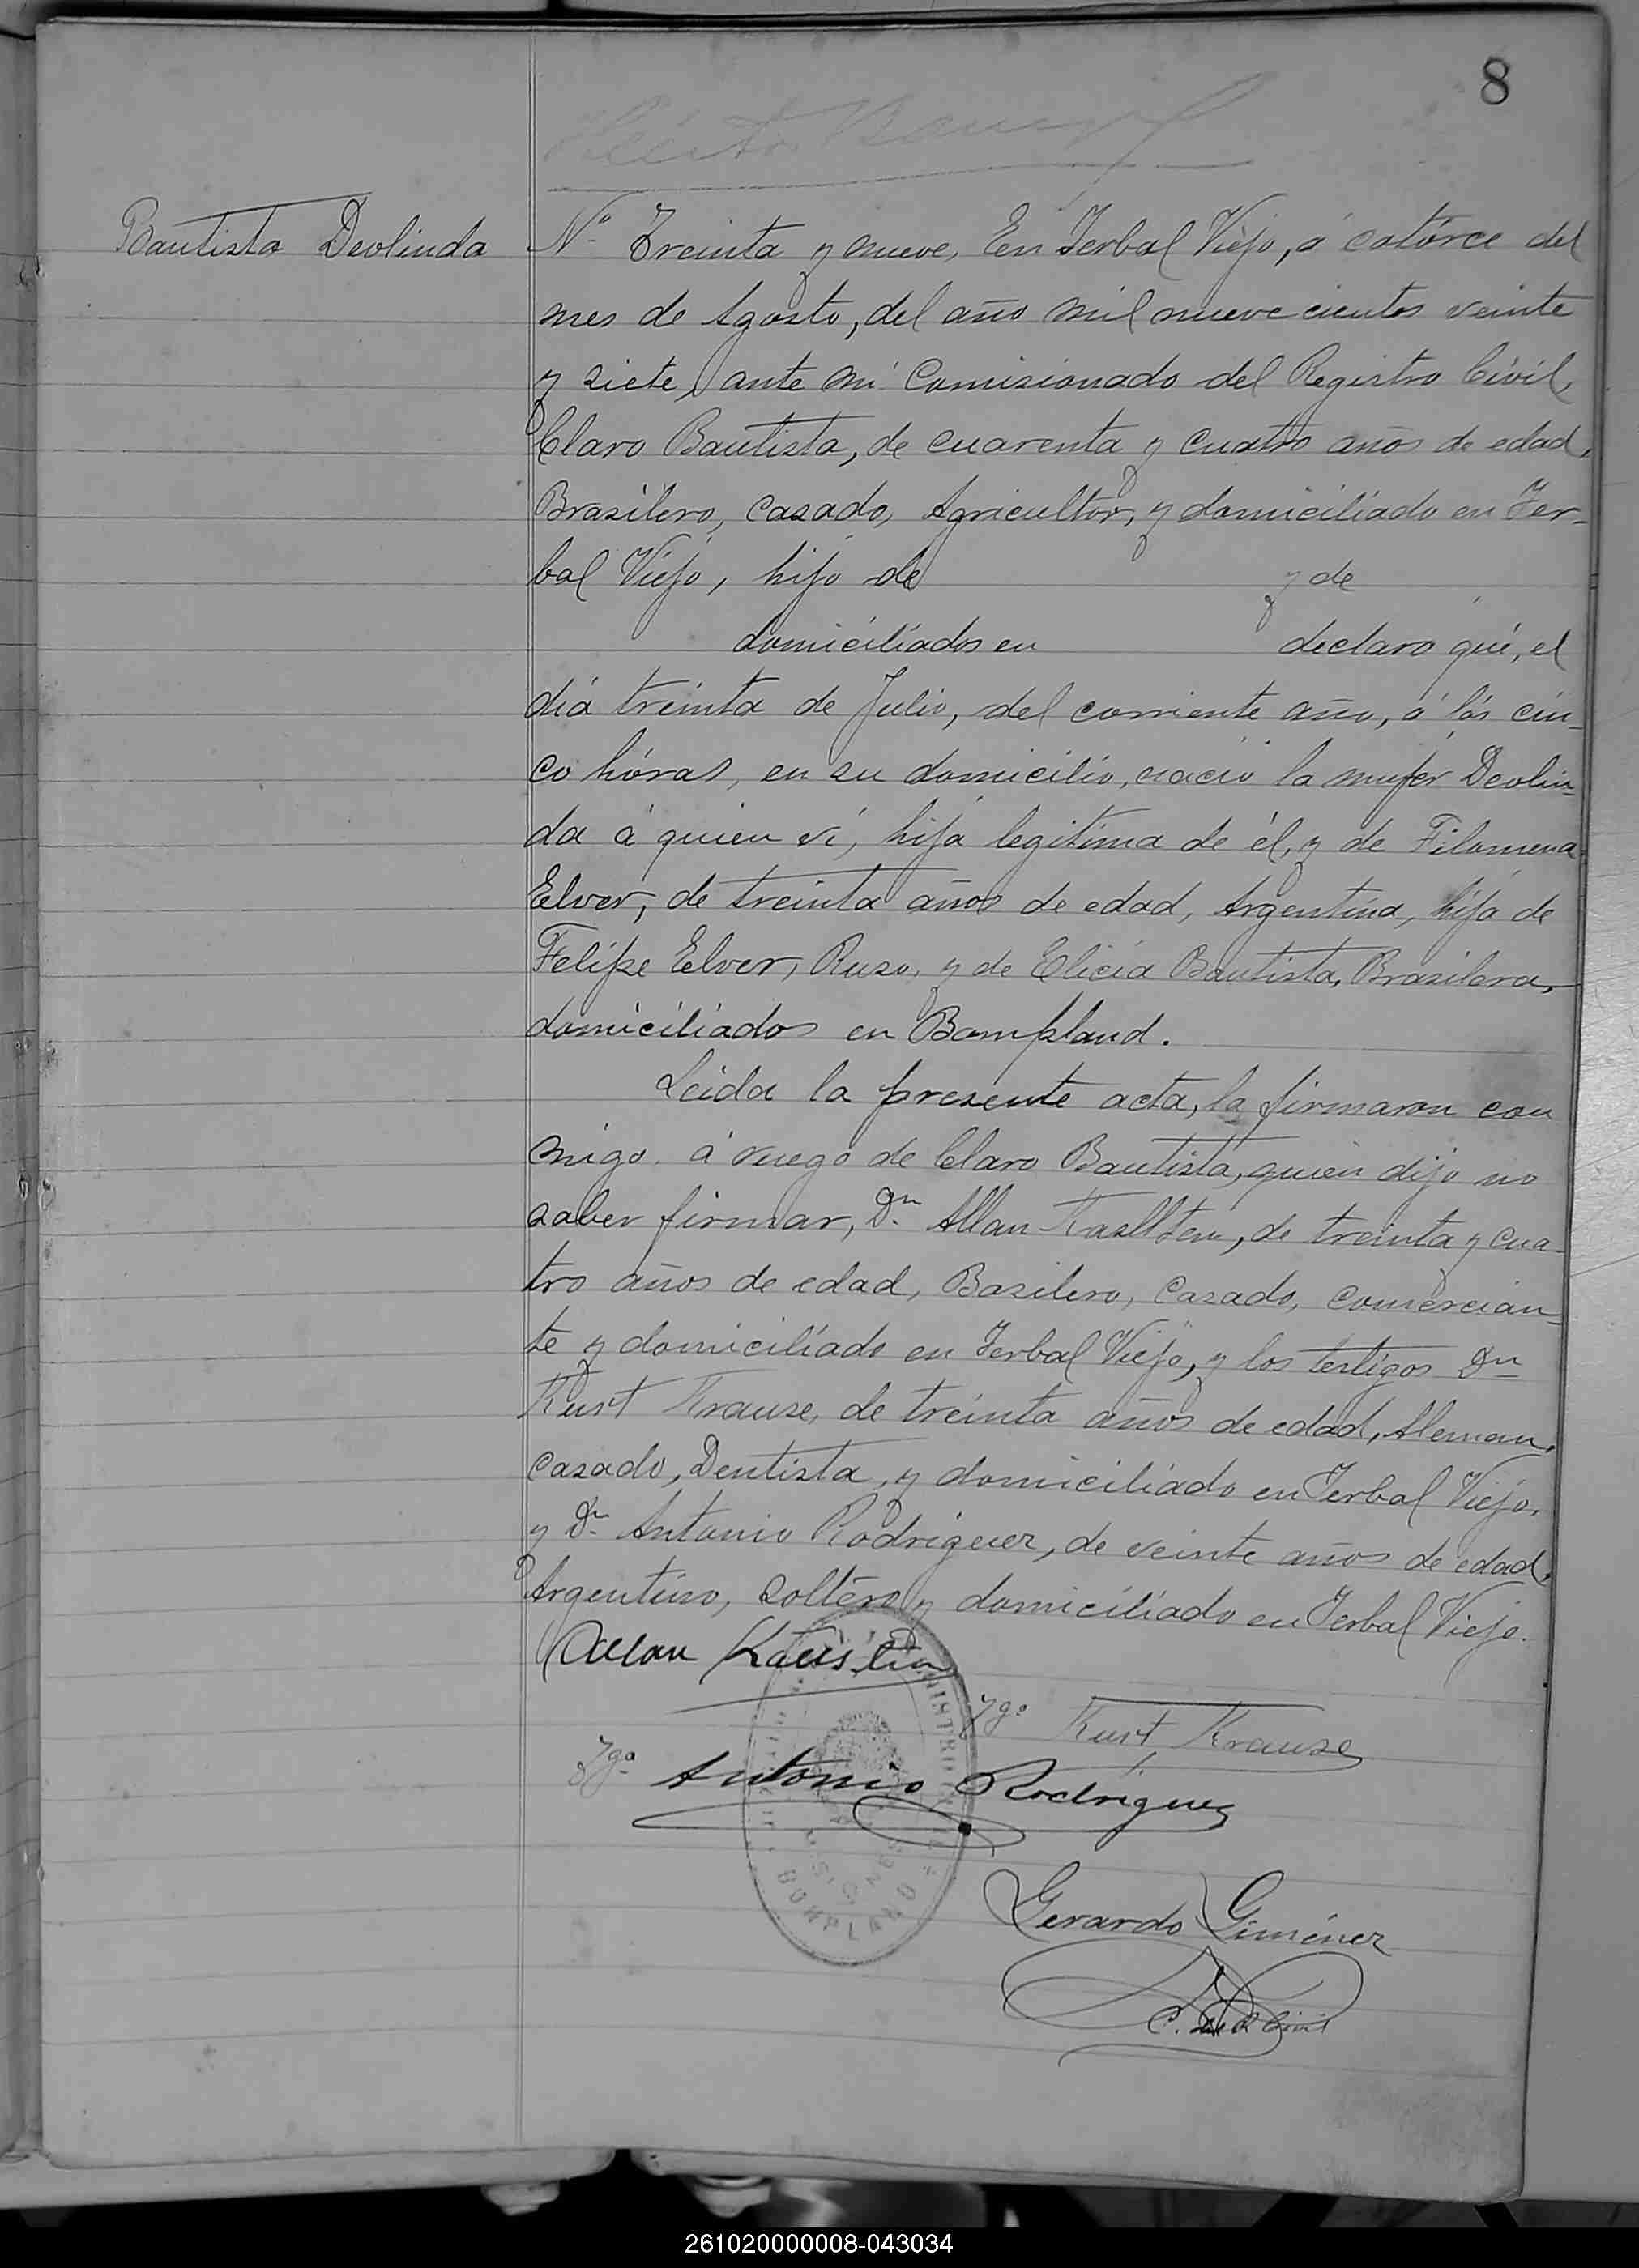 8
Bautista Deolinda
Nº Treinta y nueve, En Yerbal Viejo, á catórce del
mes de Agosto, del año mil nueve cientos veinte
y siete, ante mi Comisionado del Registro Civil,
Claro Bautista, de cuarenta y cuatro años de edad,
Brasilero, casado, Agricultor, y domiciliado en Yer-
bal Viejo, hijo de y de
domiciliados en declaro qué, el
día treinta de Julio, del corriente año, á lás cin-
co hóras, en su domicilio, nació la mujer Deolin-
da á quien ví, hija legitima de él, y de Filomena
Elver, de treinta años de edad, Argentina, hija de
Felipe Elver, Ruso, y de Clicia Bautista, Brasilera,
domiciliados en Bompland.
Leida la presente acta, la firmaron con
migo. á ruego de Claro Bautista, quien dijo no
saber firmar, Dn. Allan, de treinta y cua-
tro años de edad, Basilero, Casado, comercian-
te y domiciliado en Yerbal Viejo, y los testigos Dn
Kurt Krause, de treinta años de edad, Aleman,
casado, Dentista, y domiciliado en Yerbal Viejo,
y Dn. Antonio Rodriguez, de veinte años de edad,
Argentino, soltéro y domiciliado en Yerbal Viejo.
Allan
Tgo Kurt Krause
Tgo Antonio Rodriguez
BONPLAND
Gerardo Giménez
261020000008-043034